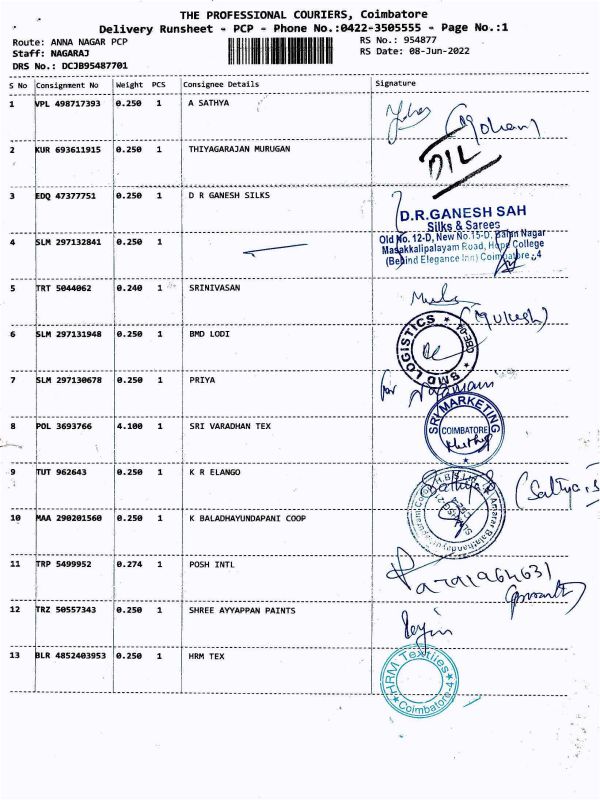 THE PROFESSIONAL COURIERS, Coimbatore
Delivery Runsheet - PCP - Phone No.:0422-3505555 - Page No.:1
Route: ANNA NAGAR PCP RS No.: 954877
Staff: NAGARAJ RS Date: 08-Jun-2022
DRS No.: DCJB95487701
S No Consignment No Weight PCS Consignee Details Signature
1 VPL 498717393 0.250 1 A SATHYA
(Mohan)
2 KUR 693611915 0.250 1 THIYAGARAJAN MURUGAN
D/L
3 EDQ 47377751 0.250 1 D R GANESH SILKS
D.R.GANESH SAH
Silks & Sarees
Old No. 12-D, New No.15-D, Balan Nagar
Masakkalipalayam Road, Hope College
(Behind Elegance Inn) Coimbatore - 4
4 SLM 297132841 0.250 1
5 TRT 5044062 0.240 1 SRINIVASAN
(Mukesh)
6 SLM 297131948 0.250 1 BMD LODI
BMD LOGISTICS
CBE-04
7 SLM 297130678 0.250 1 PRIYA
for
8 POL 3693766 4.100 1 SRI VARADHAN TEX
SRI MARKETING
COIMBATORE
9 TUT 962643 0.250 1 K R ELANGO
10 MAA 290201560 0.250 1 K BALADHAYUNDAPANI COOP
11 TRP 5499952 0.274 1 POSH INTL
12 TRZ 50557343 0.250 1 SHREE AYYAPPAN PAINTS
13 BLR 4852403953 0.250 1 HRM TEX
HRM Textiles
Coimbatore-4